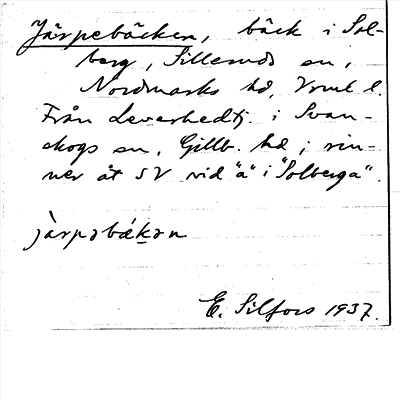 Järpebäcken, bäck i Sol-
berg, Silleruds sn,
Nordmarks hd, Vrml. l.
Från Leverhedtj. i Svan-
skogs sn, Gillb. hd; rin-
ner åt SV vid "a" i "Solberga".
järpəbäkən
E. Silfors 1937.